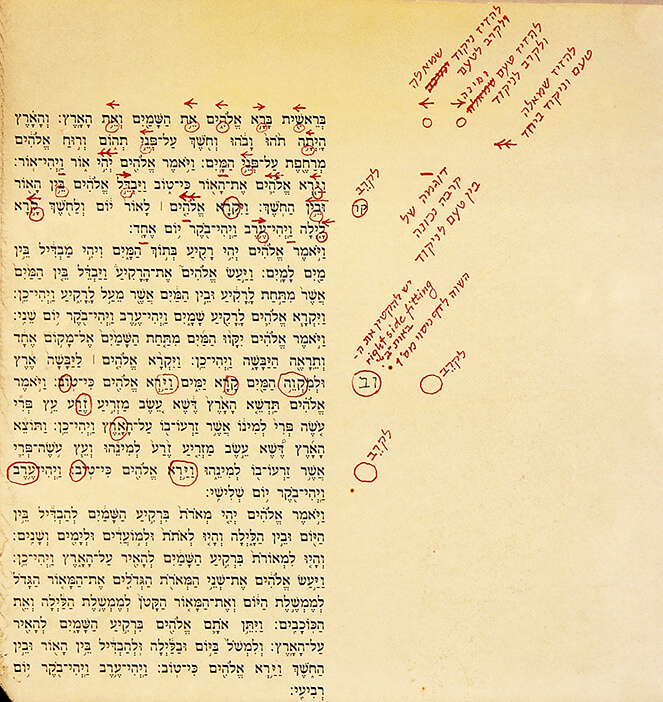 בְּרֵאשִׁ֖ית בָּרָ֣א אֱלֹהִ֑ים אֵ֥ת הַשָּׁמַ֖יִם וְאֵ֥ת הָאָֽרֶץ׃ וְהָאָ֗רֶץ
הָיְתָ֥ה תֹ֙הוּ֙ וָבֹ֔הוּ וְחֹ֖שֶׁךְ עַל־פְּנֵ֣י תְה֑וֹם וְר֣וּחַ אֱלֹהִ֔ים
מְרַחֶ֖פֶת עַל־פְּנֵ֥י הַמָּֽיִם׃ וַיֹּ֥אמֶר אֱלֹהִ֖ים יְהִ֣י א֑וֹר וַֽיְהִי־אֽוֹר׃
וַיַּ֧רְא אֱלֹהִ֛ים אֶת־הָא֖וֹר כִּי־ט֑וֹב וַיַּבְדֵּ֣ל אֱלֹהִ֔ים בֵּ֥ין הָא֖וֹר
וּבֵ֥ין הַחֹֽשֶׁךְ׃ וַיִּקְרָ֨א אֱלֹהִ֤ים ׀ לָאוֹר֙ י֔וֹם וְלַחֹ֖שֶׁךְ קָ֣רָא
לָ֑יְלָה וַֽיְהִי־עֶ֥רֶב וַֽיְהִי־בֹ֖קֶר י֥וֹם אֶחָֽד׃
וַיֹּ֣אמֶר אֱלֹהִ֔ים יְהִ֥י רָקִ֖יעַ בְּת֣וֹךְ הַמָּ֑יִם וִיהִ֣י מַבְדִּ֔יל בֵּ֥ין
מַ֖יִם לָמָֽיִם׃ וַיַּ֣עַשׂ אֱלֹהִים֮ אֶת־הָרָקִיעַ֒ וַיַּבְדֵּ֗ל בֵּ֤ין הַמַּ֙יִם֙
אֲשֶׁר֙ מִתַּ֣חַת לָרָקִ֔יעַ וּבֵ֣ין הַמַּ֔יִם אֲשֶׁ֖ר מֵעַ֣ל לָרָקִ֑יעַ וַֽיְהִי־כֵֽן׃
וַיִּקְרָ֧א אֱלֹהִ֛ים לָֽרָקִ֖יעַ שָׁמָ֑יִם וַֽיְהִי־עֶ֥רֶב וַֽיְהִי־בֹ֖קֶר י֥וֹם שֵׁנִֽי׃
וַיֹּ֣אמֶר אֱלֹהִ֗ים יִקָּו֨וּ הַמַּ֜יִם מִתַּ֤חַת הַשָּׁמַ֙יִם֙ אֶל־מָק֣וֹם אֶחָ֔ד
וְתֵרָאֶ֖ה הַיַּבָּשָׁ֑ה וַֽיְהִי־כֵֽן׃ וַיִּקְרָ֨א אֱלֹהִ֤ים ׀ לַיַּבָּשָׁה֙ אֶ֔רֶץ
וּלְמִקְוֵ֥ה הַמַּ֖יִם קָרָ֣א יַמִּ֑ים וַיַּ֥רְא אֱלֹהִ֖ים כִּי־טֽוֹב׃ וַיֹּ֣אמֶר
אֱלֹהִ֗ים תַּֽדְשֵׁ֤א הָאָ֙רֶץ֙ דֶּ֔שֶׁא עֵ֚שֶׂב מַזְרִ֣יעַ זֶ֔רַע עֵ֣ץ פְּרִ֞י
עֹ֤שֶׂה פְּרִי֙ לְמִינ֔וֹ אֲשֶׁ֥ר זַרְעוֹ־ב֖וֹ עַל־הָאָ֑רֶץ וַֽיְהִי־כֵֽן׃ וַתּוֹצֵ֨א
הָאָ֜רֶץ דֶּ֠שֶׁא עֵ֣שֶׂב מַזְרִ֤יעַ זֶ֙רַע֙ לְמִינֵ֔הוּ וְעֵ֧ץ עֹֽשֶׂה־פְּרִ֛י
אֲשֶׁ֥ר זַרְעוֹ־ב֖וֹ לְמִינֵ֑הוּ וַיַּ֥רְא אֱלֹהִ֖ים כִּי־טֽוֹב׃ וַֽיְהִי־עֶ֥רֶב
וַֽיְהִי־בֹ֖קֶר י֥וֹם שְׁלִישִֽׁי׃
וַיֹּ֣אמֶר אֱלֹהִ֗ים יְהִ֤י מְאֹרֹת֙ בִּרְקִ֣יעַ הַשָּׁמַ֔יִם לְהַבְדִּ֕יל בֵּ֥ין
הַיּ֖וֹם וּבֵ֣ין הַלָּ֑יְלָה וְהָי֤וּ לְאֹתֹת֙ וּלְמ֣וֹעֲדִ֔ים וּלְיָמִ֖ים וְשָׁנִֽים׃
וְהָי֤וּ לִמְאוֹרֹת֙ בִּרְקִ֣יעַ הַשָּׁמַ֔יִם לְהָאִ֖יר עַל־הָאָ֑רֶץ וַֽיְהִי־כֵֽן׃
וַיַּ֣עַשׂ אֱלֹהִ֔ים אֶת־שְׁנֵ֥י הַמְּאֹרֹ֖ת הַגְּדֹלִ֑ים אֶת־הַמָּא֤וֹר הַגָּדֹל֙
לְמֶמְשֶׁ֣לֶת הַיּ֔וֹם וְאֶת־הַמָּא֤וֹר הַקָּטֹן֙ לְמֶמְשֶׁ֣לֶת הַלַּ֔יְלָה וְאֵ֖ת
הַכּוֹכָבִֽים׃ וַיִּתֵּ֥ן אֹתָ֛ם אֱלֹהִ֖ים בִּרְקִ֣יעַ הַשָּׁמָ֑יִם לְהָאִ֖יר
עַל־הָאָֽרֶץ׃ וְלִמְשֹׁל֙ בַּיּ֣וֹם וּבַלַּ֔יְלָה וּֽלְהַבְדִּ֔יל בֵּ֥ין הָא֖וֹר וּבֵ֣ין
הַחֹ֑שֶׁךְ וַיַּ֥רְא אֱלֹהִ֖ים כִּי־טֽוֹב׃ וַֽיְהִי־עֶ֥רֶב וַֽיְהִי־בֹ֖קֶר י֥וֹם
רְבִיעִֽי׃
להזיז ניקוד שמאלה
ולקרב לטעם
להזיז טעם ימינה
ולקרב לניקוד
להזיז שמאלה
טעם וניקוד ביחד
לקרב
קר
דוגמה של
קרבה נכונה
בין טעם לניקוד
יש להקטין את ה-
right side fitting
באות ב'.
השווה לדף ניסוי מס' 1
וב
לקרב
לקרב